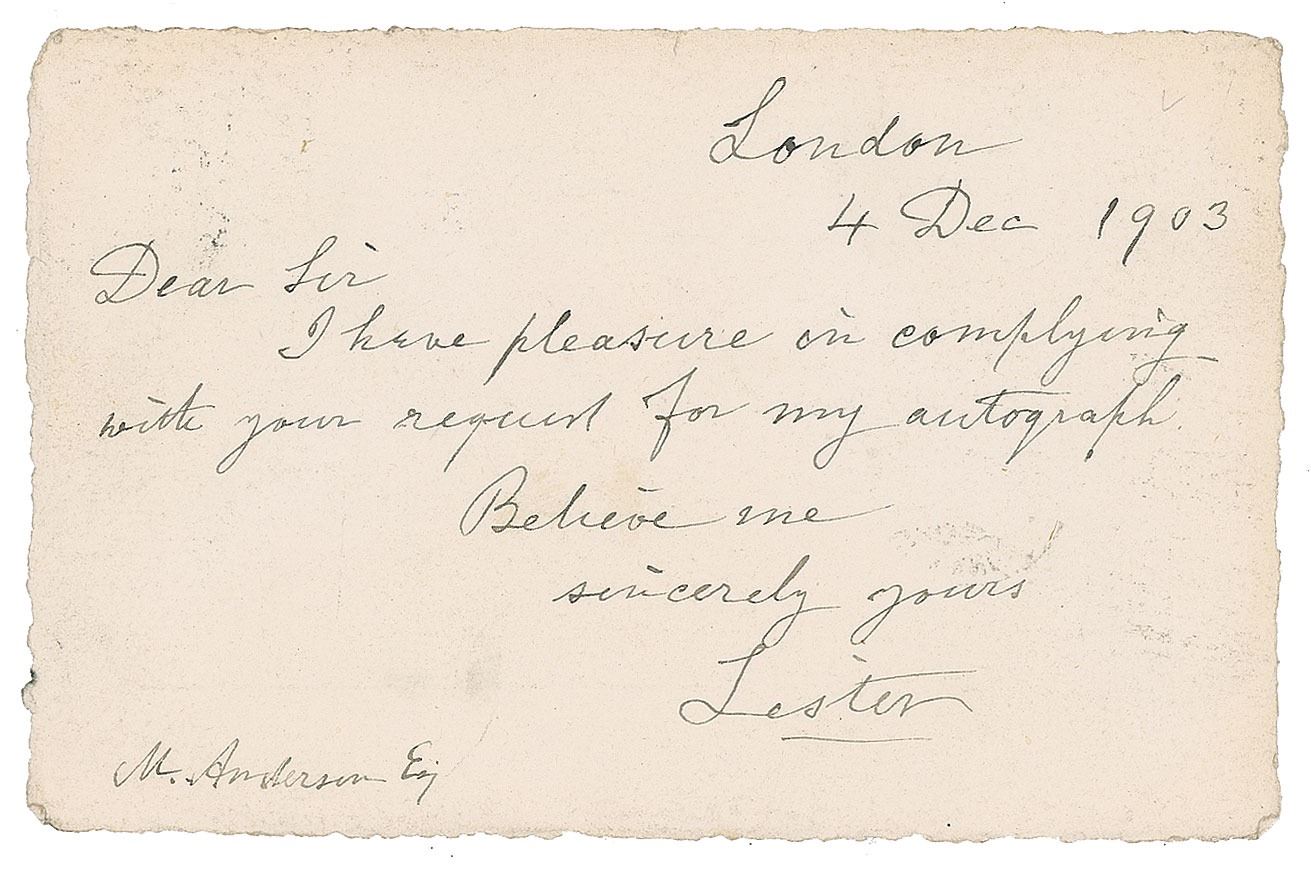 London
4 Dec 1903
Dear Sir
I have pleasure in complying
with your request for my autograph.
Believe me
sincerely yours
Lister
M. Anderson Esq